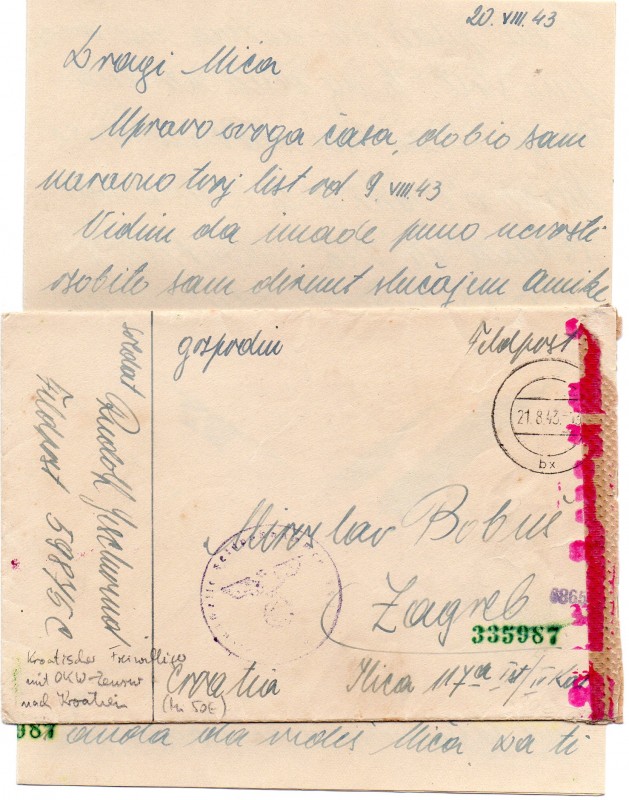 20. VIII. 43
Dragi Mića
Upravo ovoga časa, dobio sam
naravno tvoj list od 9. VIII. 43
Vidim da imade puno novosti
osobito sam dirnut slučajem Anike
gospodin
Feldpost
21.8.43.
bx
Miroslav Bobuš
Zagreb
6865
335987
Croatia
Ilica 117a
soldat Rudolf
Feldpost 59875 C
Kroatischer Freiwilliger
mit OKW-Zensur
nach Kroatien
987
da vidiš Mića, za ti